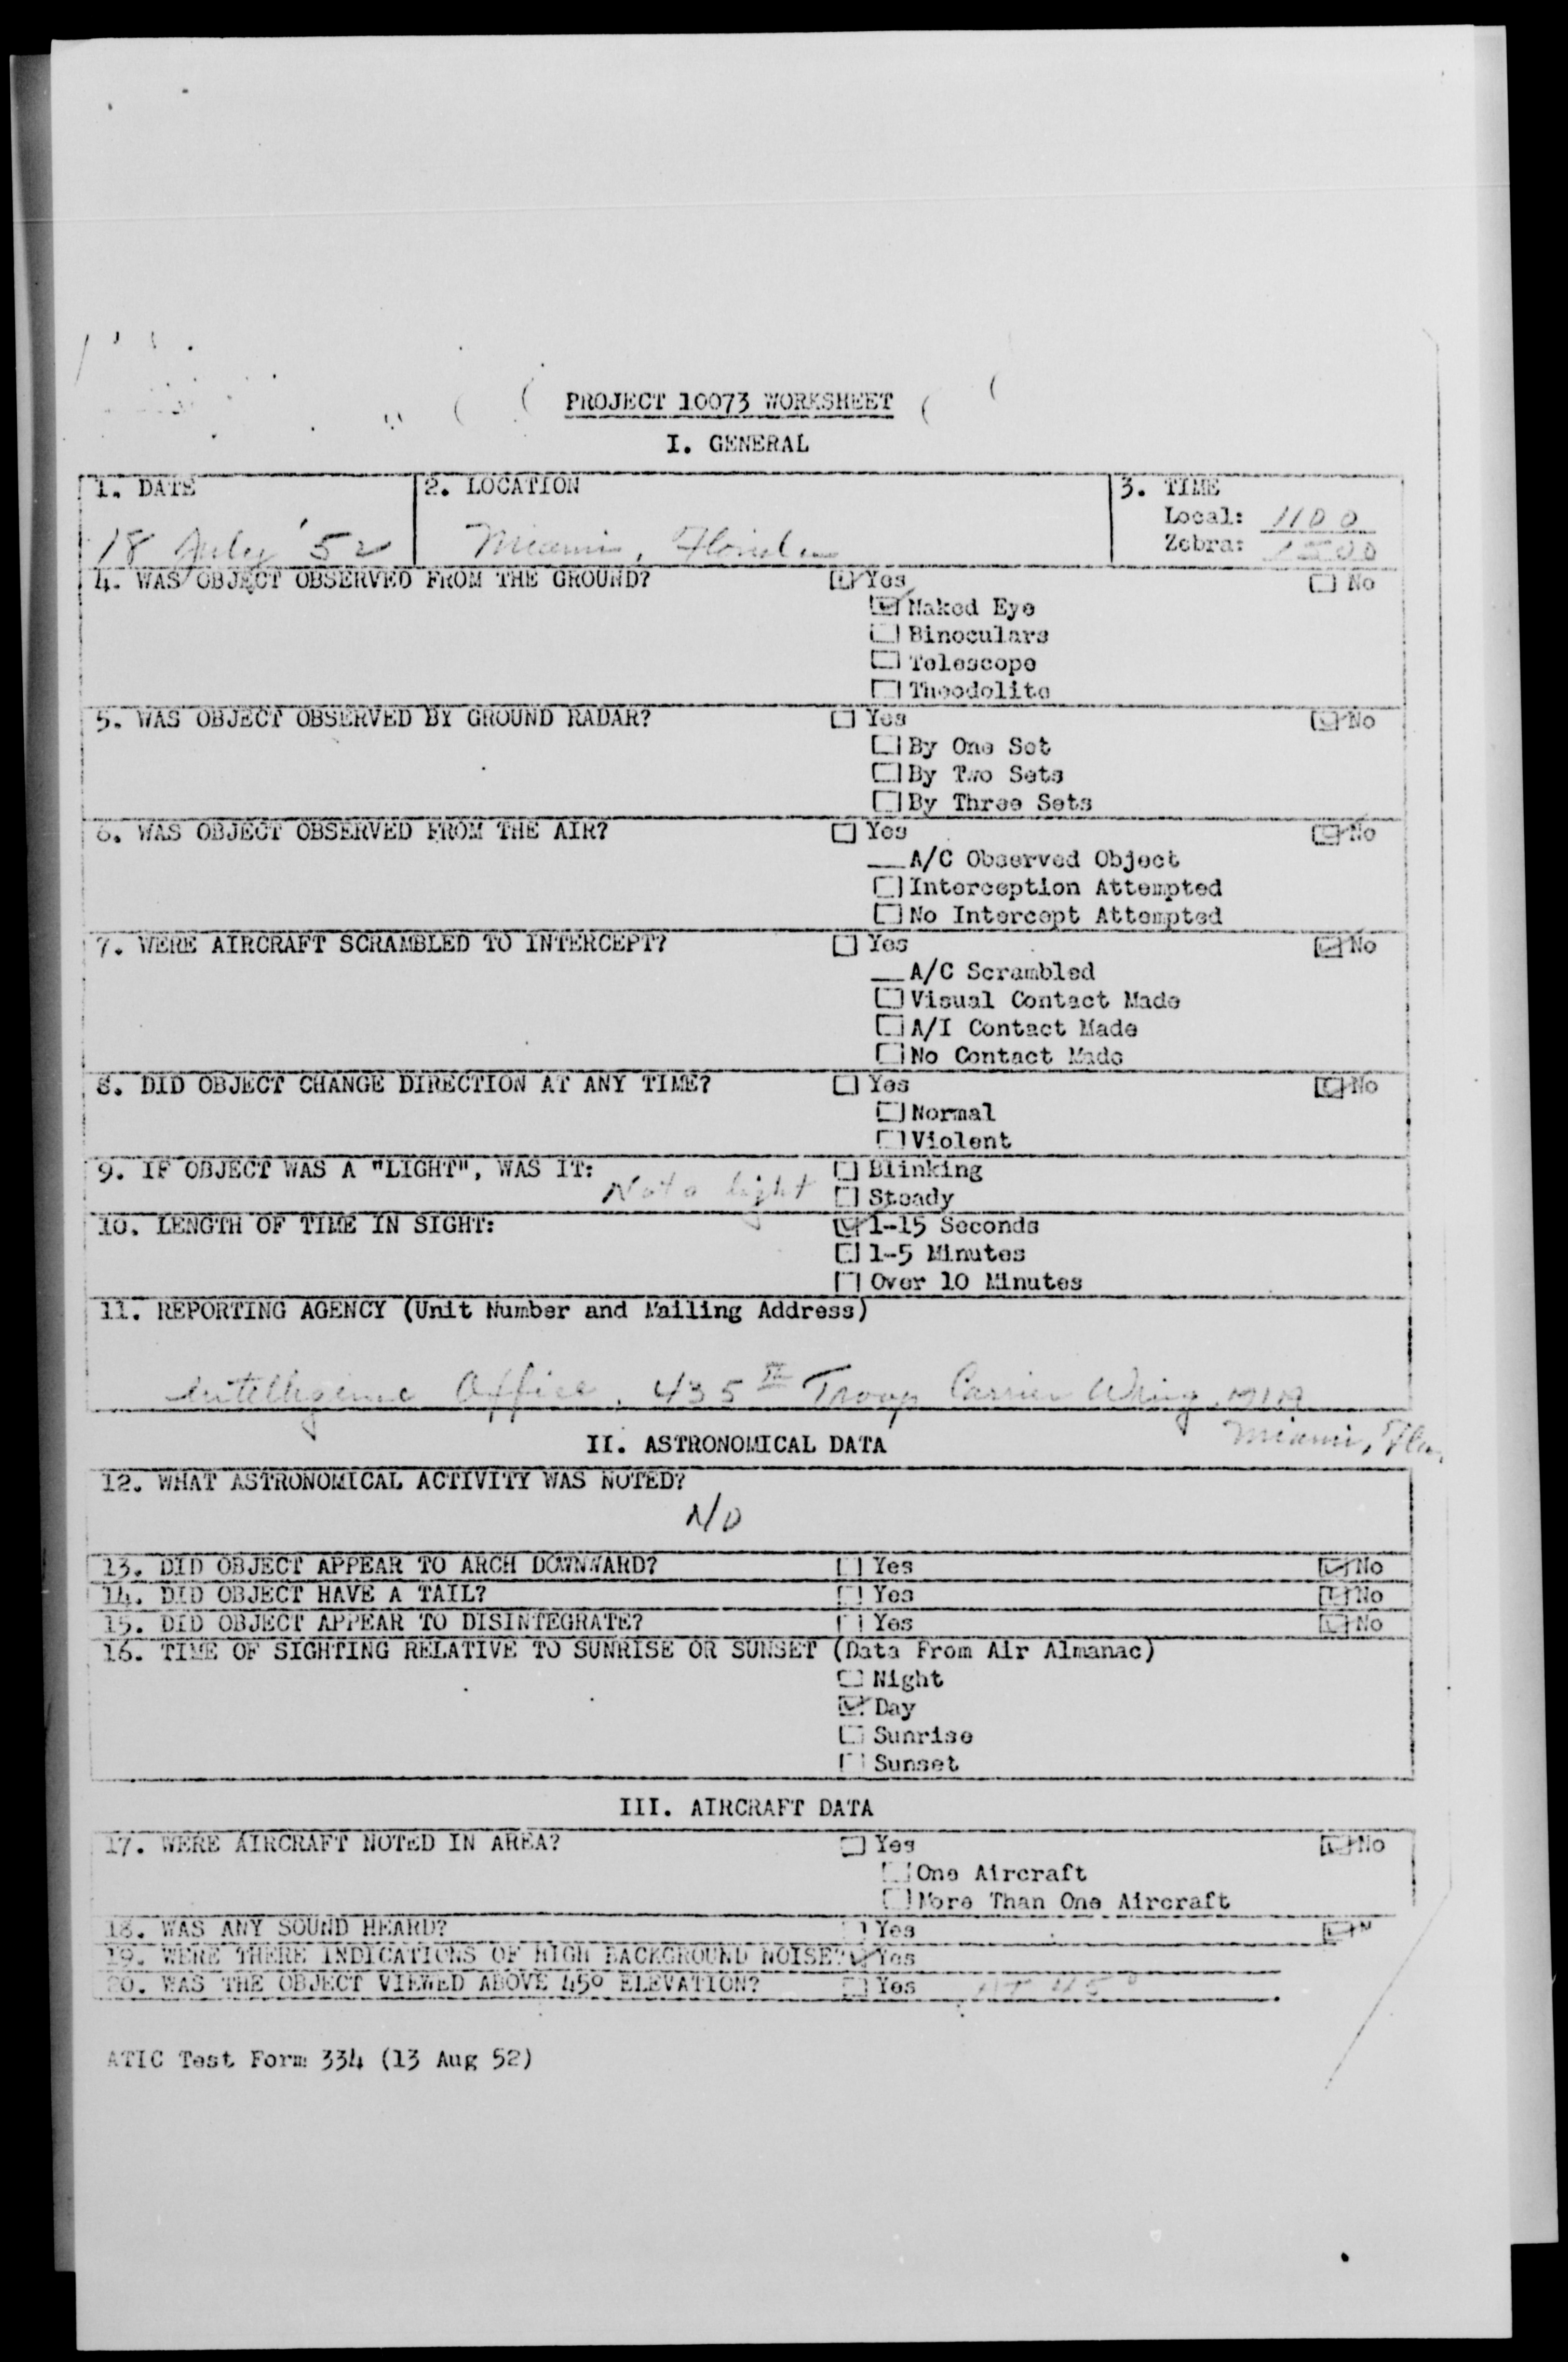 PROJECT 10073 WORKSHEET
I. GENERAL
1. DATE
2. LOCATION
3. TIME
18 July '52
Miami, Florida
Local: 1100
Zebra: 1500
4. WAS OBJECT OBSERVED FROM THE GROUND? Yes No
Naked Eye
Binoculars
Telescope
Theodolite
5. WAS OBJECT OBSERVED BY GROUND RADAR? Yes No
By One Set
By Two Sets
By Three Sets
6. WAS OBJECT OBSERVED FROM THE AIR? Yes No
__A/C Observed Object
Interception Attempted
No Intercept Attempted
7. WERE AIRCRAFT SCRAMBLED TO INTERCEPT? Yes No
__A/C Scrambled
Visual Contact Made
A/I Contact Made
No Contact Made
8. DID OBJECT CHANGE DIRECTION AT ANY TIME? Yes No
Normal
Violent
9. IF OBJECT WAS A "LIGHT", WAS IT: Not a light Blinking
Steady
10. LENGTH OF TIME IN SIGHT: 1-15 Seconds
1-5 Minutes
Over 10 Minutes
11. REPORTING AGENCY (Unit Number and Mailing Address)
Intelligence Office, 435th Troop Carrier Wing, MIA
Miami, Fla.
II. ASTRONOMICAL DATA
12. WHAT ASTRONOMICAL ACTIVITY WAS NOTED?
NO
13. DID OBJECT APPEAR TO ARCH DOWNWARD? Yes No
14. DID OBJECT HAVE A TAIL? Yes No
15. DID OBJECT APPEAR TO DISINTEGRATE? Yes No
16. TIME OF SIGHTING RELATIVE TO SUNRISE OR SUNSET (Data From Air Almanac)
Night
Day
Sunrise
Sunset
III. AIRCRAFT DATA
17. WERE AIRCRAFT NOTED IN AREA? Yes No
One Aircraft
More Than One Aircraft
18. WAS ANY SOUND HEARD? Yes N
19. WERE THERE INDICATIONS OF HIGH BACKGROUND NOISE? Yes
20. WAS THE OBJECT VIEWED ABOVE 45° ELEVATION? Yes AT 45°
ATIC Test Form 334 (13 Aug 52)